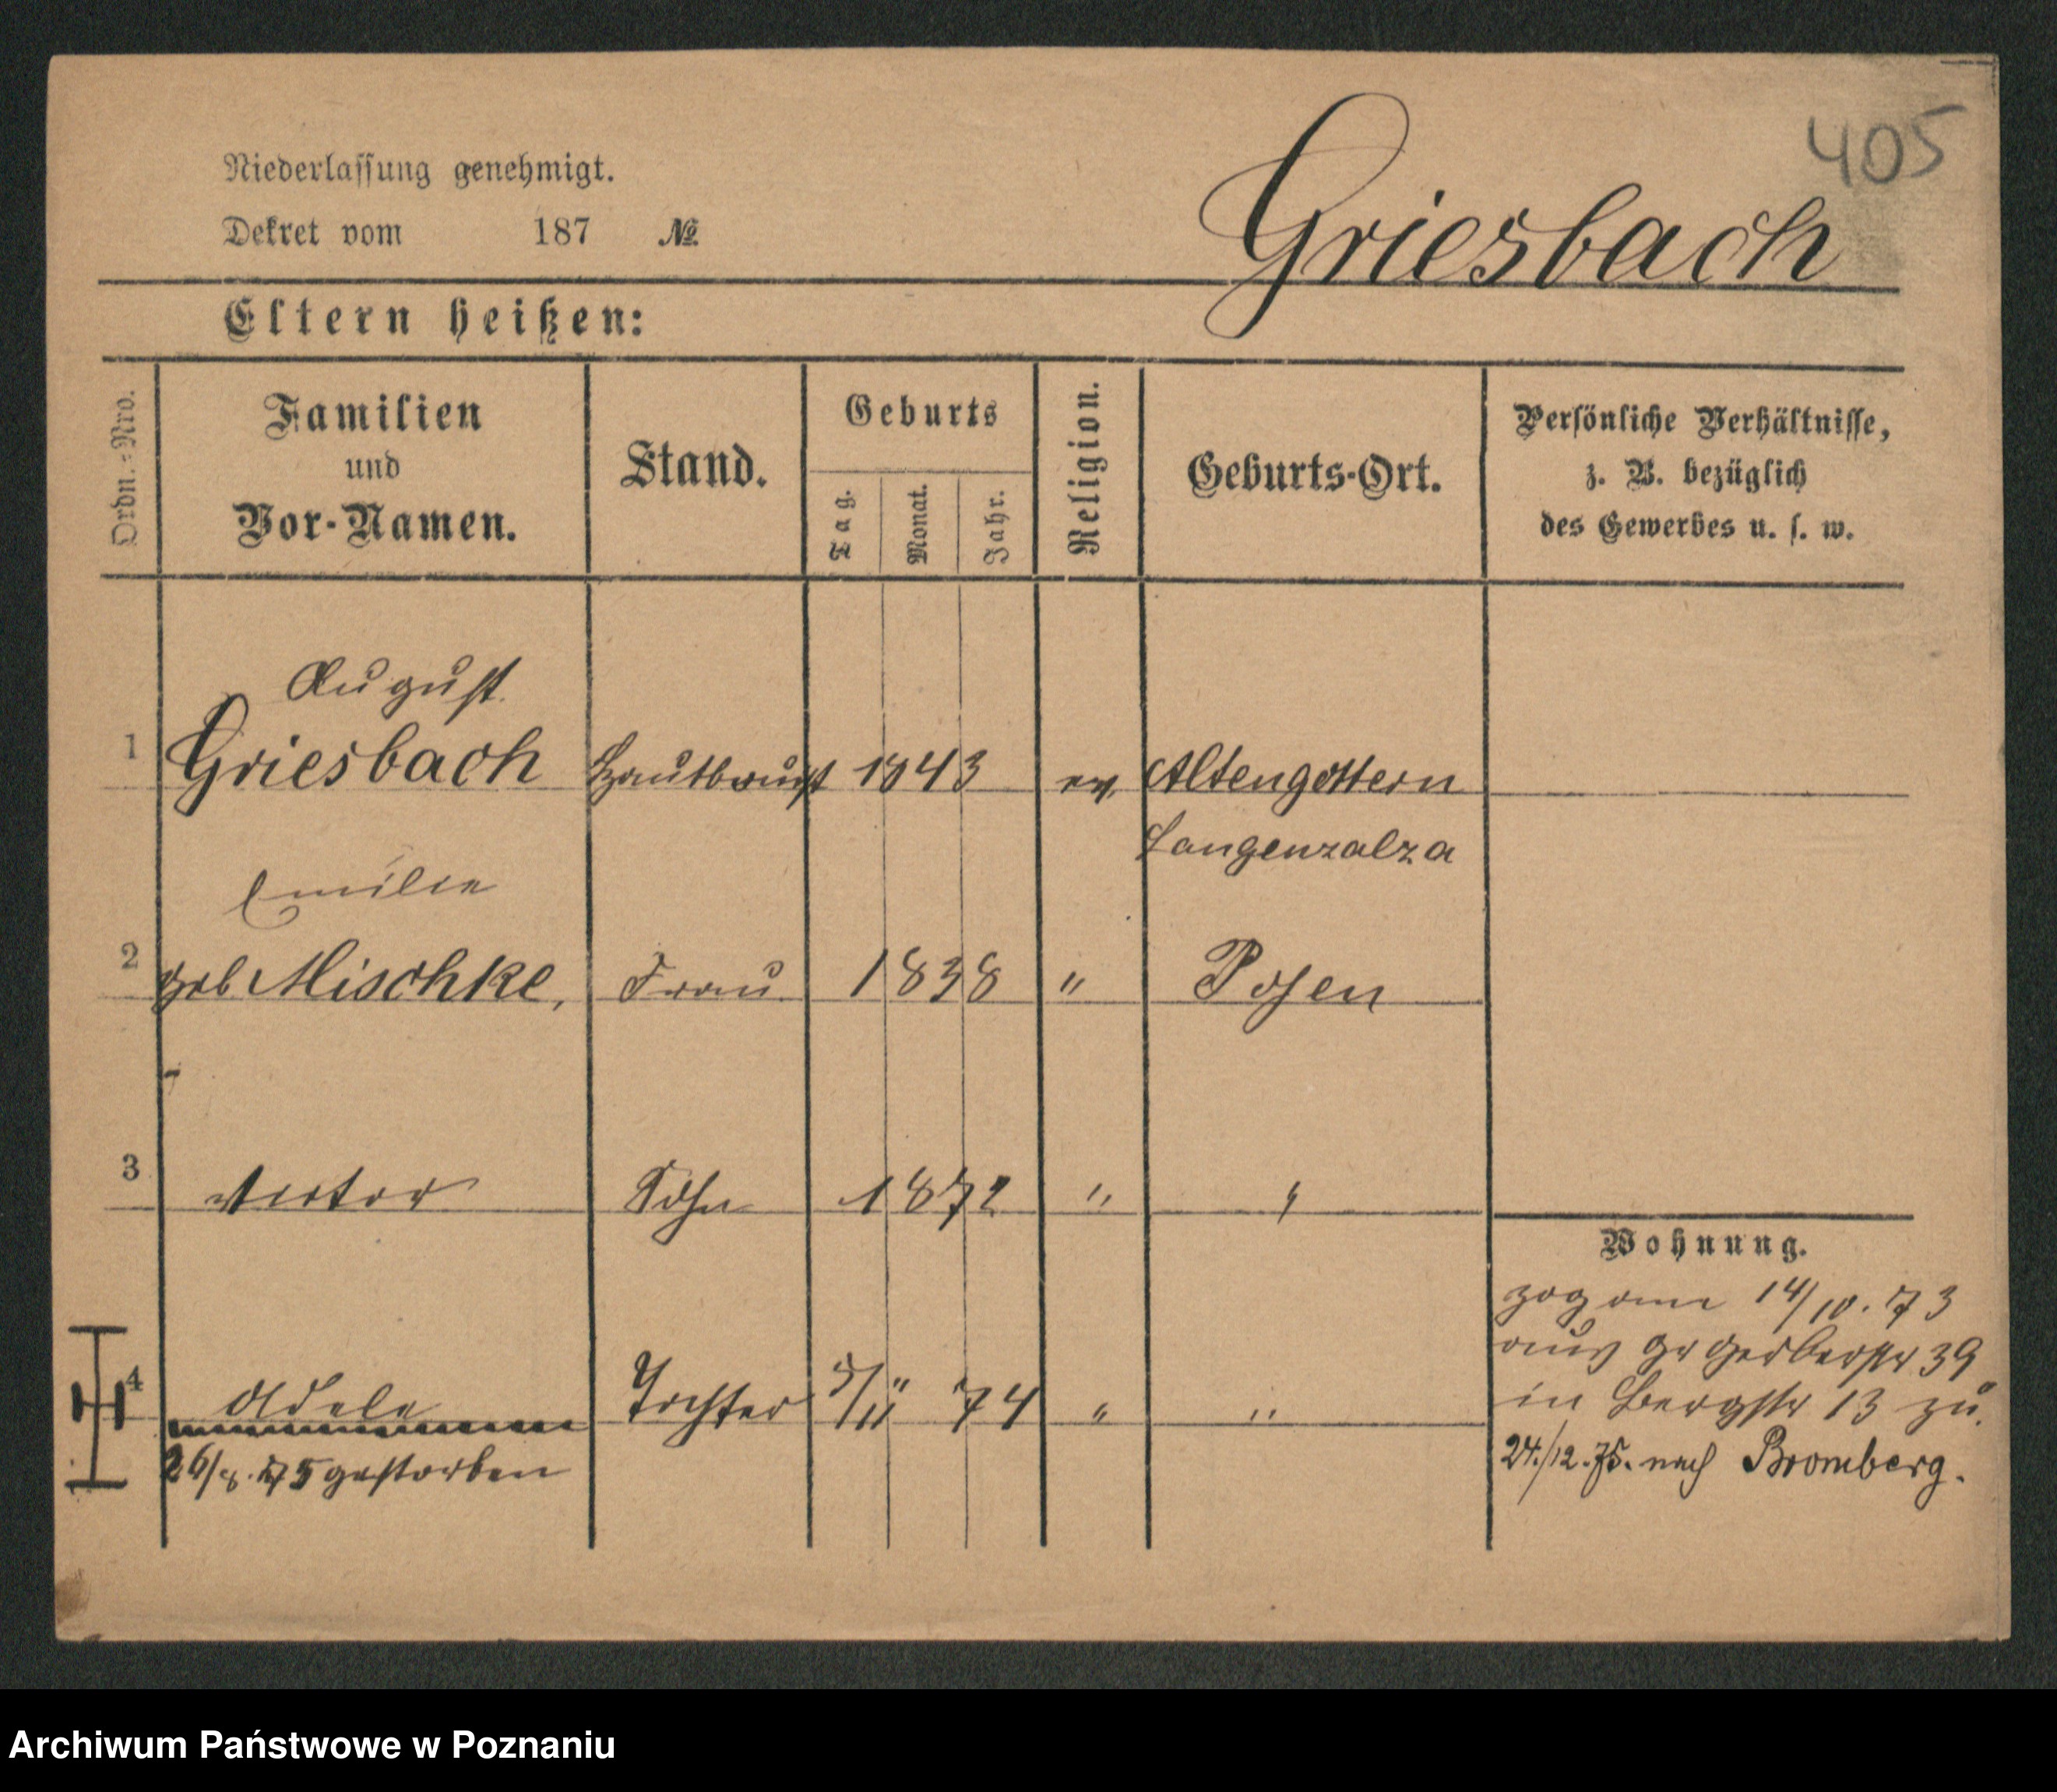 405
Niederlassung genehmigt.
Dekret vom 187 №
Griesbach
Eltern heißen:
Ordn.-Nro.
Familien
und
Vor-Namen.
Stand.
Geburts
Tag.
Monat.
Jahr.
Religion.
Geburts-Ort.
Persönliche Verhältnisse,
z. B. bezüglich
des Gewerbes u. s. w.
August
1 Griesbach 1843 ev. Altengottern
Langensalza
Emilie
2 geb Mischke, Frau 1838 " Posen
3 Victor Sohn 1872 " "
Wohnung.
zog am 14/10. 73
aus Gr Gerberstr 39
in Bergstr 13 zu.
24./12.75. nach Bromberg.
4 Adele Tochter 5/11 74 " "
26/8. 75 gestorben
Archiwum Państwowe w Poznaniu